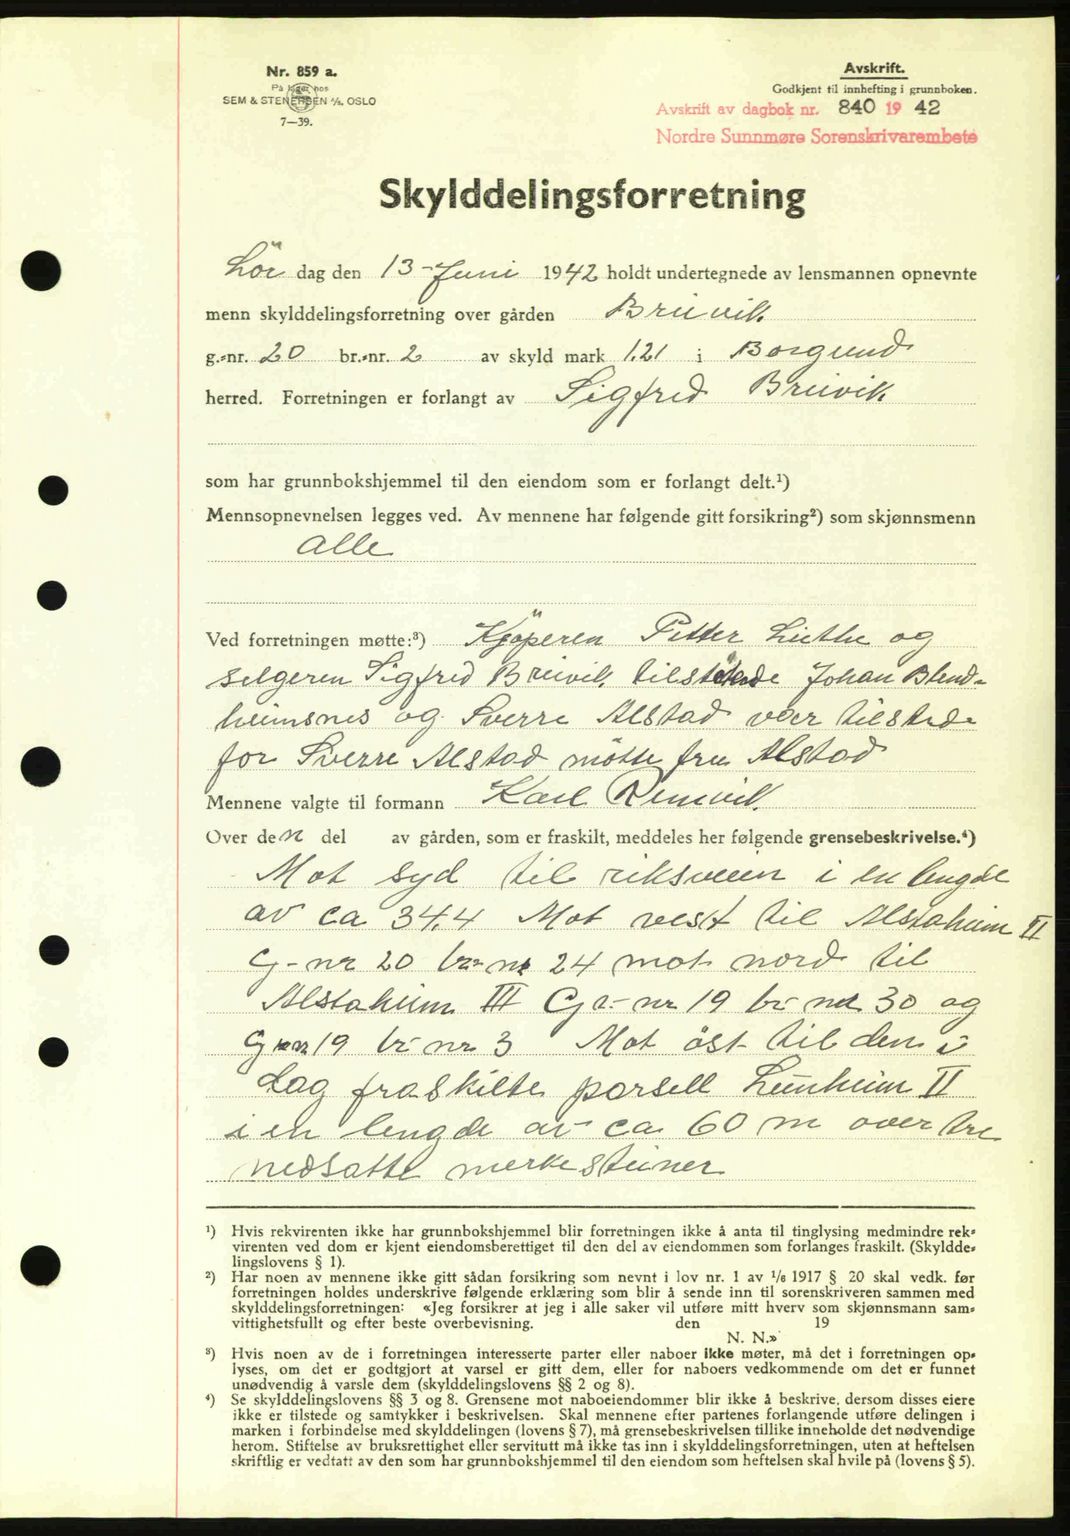 Nr. 859 a.
På lager hos
SEM & STENERSEN A/S. OSLO
7—39.
Avskrift.
Godkjent til innhefting i grunnboken.
Avskrift av dagbok nr. 840 19 42
Nordre Sunnmøre Sorenskrivarembete
Skylddelingsforretning
Lör dag den 13-Juni 1942 holdt undertegnede av lensmannen opnevnte
menn skylddelingsforretning over gården Breivik
g.-nr. 20 br.-nr. 2 av skyld mark 1.21 i Borgund
herred. Forretningen er forlangt av Sigfred Breivik
som har grunnbokshjemmel til den eiendom som er forlangt delt.¹)
Mennsopnevnelsen legges ved. Av mennene har følgende gitt forsikring²) som skjønnsmenn
alle
Ved forretningen møtte:³) Kjöperen Petter og
selgeren Sigfred Breivik, Johan Blend-
heimsnes og Sverre Alstad var tilstede
for Sverre Alstad mötte fru Alstad
Mennene valgte til formann Karl
Over den del av gården, som er fraskilt, meddeles her følgende grensebeskrivelse.⁴)
Mot syd til riksveien i en lengde
av ca 34.4 Mot vest til Alstaheim II
G-nr 20 br-nr 24 mot nord til
Alstaheim III Gr-nr 19 br-nr 30 og
G nr 19 br-nr 3 Mot öst til den i
dag fraskilte parsell Leinheim II
i en lengde av ca 60 m over tre
nedsatte merkesteiner
¹) Hvis rekvirenten ikke har grunnbokshjemmel blir forretningen ikke å anta til tinglysing medmindre rek-
virenten ved dom er kjent eiendomsberettiget til den del av eiendommen som forlanges fraskilt. (Skyldde-
lingslovens § 1).
²) Har noen av mennene ikke gitt sådan forsikring som nevnt i lov nr. 1 av ¹/₆ 1917 § 20 skal vedk. før
forretningen holdes underskrive følgende erklæring som blir å sende inn til sorenskriveren sammen med
skylddelingsforretningen: «Jeg forsikrer at jeg i alle saker vil utføre mitt hverv som skjønnsmann sam-
vittighetsfullt og efter beste overbevisning. den 19
N. N.»
³) Hvis noen av de i forretningen interesserte parter eller naboer ikke møter, må det i forretningen op-
lyses, om det er godtgjort at varsel er gitt dem, eller for naboers vedkommende om det er funnet
unødvendig å varsle dem (skylddelingslovens §§ 2 og 8).
⁴) Se skylddelingslovens §§ 3 og 8. Grensene mot naboeiendommer blir ikke å beskrive, dersom disses eiere
ikke er tilstede og samtykker i beskrivelsen. Skal mennene efter partenes forlangende utføre delingen i
marken i forbindelse med skylddelingen (lovens § 7), må grensebeskrivelsen tillike inneholde det nødvendige
herom. Stiftelse av bruksrettighet eller servitutt må ikke tas inn i skylddelingsforretningen, uten at heftelsen
skriftlig er vedtatt av den som har grunnbokshjemmel til den eiendom som heftelsen skal hvile på (lovens § 5).